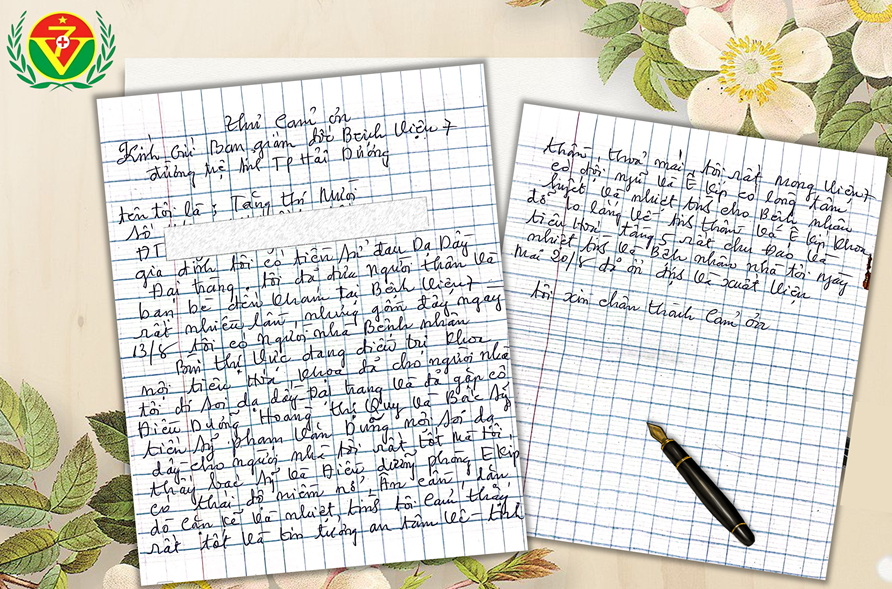 Thư Cảm ơn
Kính Gửi Ban giám đốc Bệnh Viện 7
đường Tuệ Tĩnh TP Hải Dương
tên tôi là: Tăng Thị Mười
số
ĐT
gia đình tôi có tiền sử đau Dạ Dày
Đại tràng, tôi đã đưa người thân và
bạn bè đến khám tại Bệnh Viện 7
rất nhiều lần, nhưng gầm đây ngày
13/8 tôi có người nhà Bệnh nhân
Bùi Thị Vực đang điều trị khoa
nội tiêu Hoá khoa đã cho người nhà
tôi đi soi dạ dày-Đại tràng và đã gặp cô
Điều Dưỡng Hoàng Thị Quý và Bác Sỹ
tiến sỹ phạm Văn Dũng nội soi dạ
dày cho người nhà tôi rất tốt mà tôi
thấy bác sỹ và Điều dưỡng phòng EKíp
có thái độ niềm nở, Ân cần, dặn
dò cặn kẽ và nhiệt tình tôi cảm thấy
rất tốt và tin tưởng an tâm về tinh
thần, thoả mái, tôi rất mong Viện 7
có đội ngũ và Ê kíp có lòng tâm
huyết và nhiệt tình cho Bệnh nhân
đỡ lo lắng về tinh thần và Ê kíp khoa
tiêu Hoá tầng 5 rất chu đáo và
nhiệt tình và Bệnh nhân nhà tôi ngày
mai 20/8 đã ổn định và xuất viện
tôi xin chân thành Cảm ơn